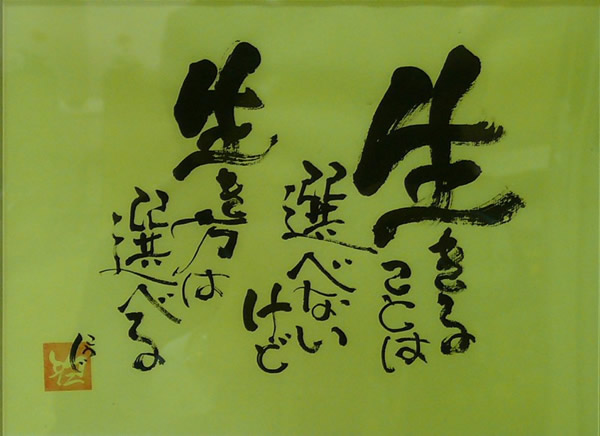 生きる
ことは
選べない
けど
生き方は
選べる